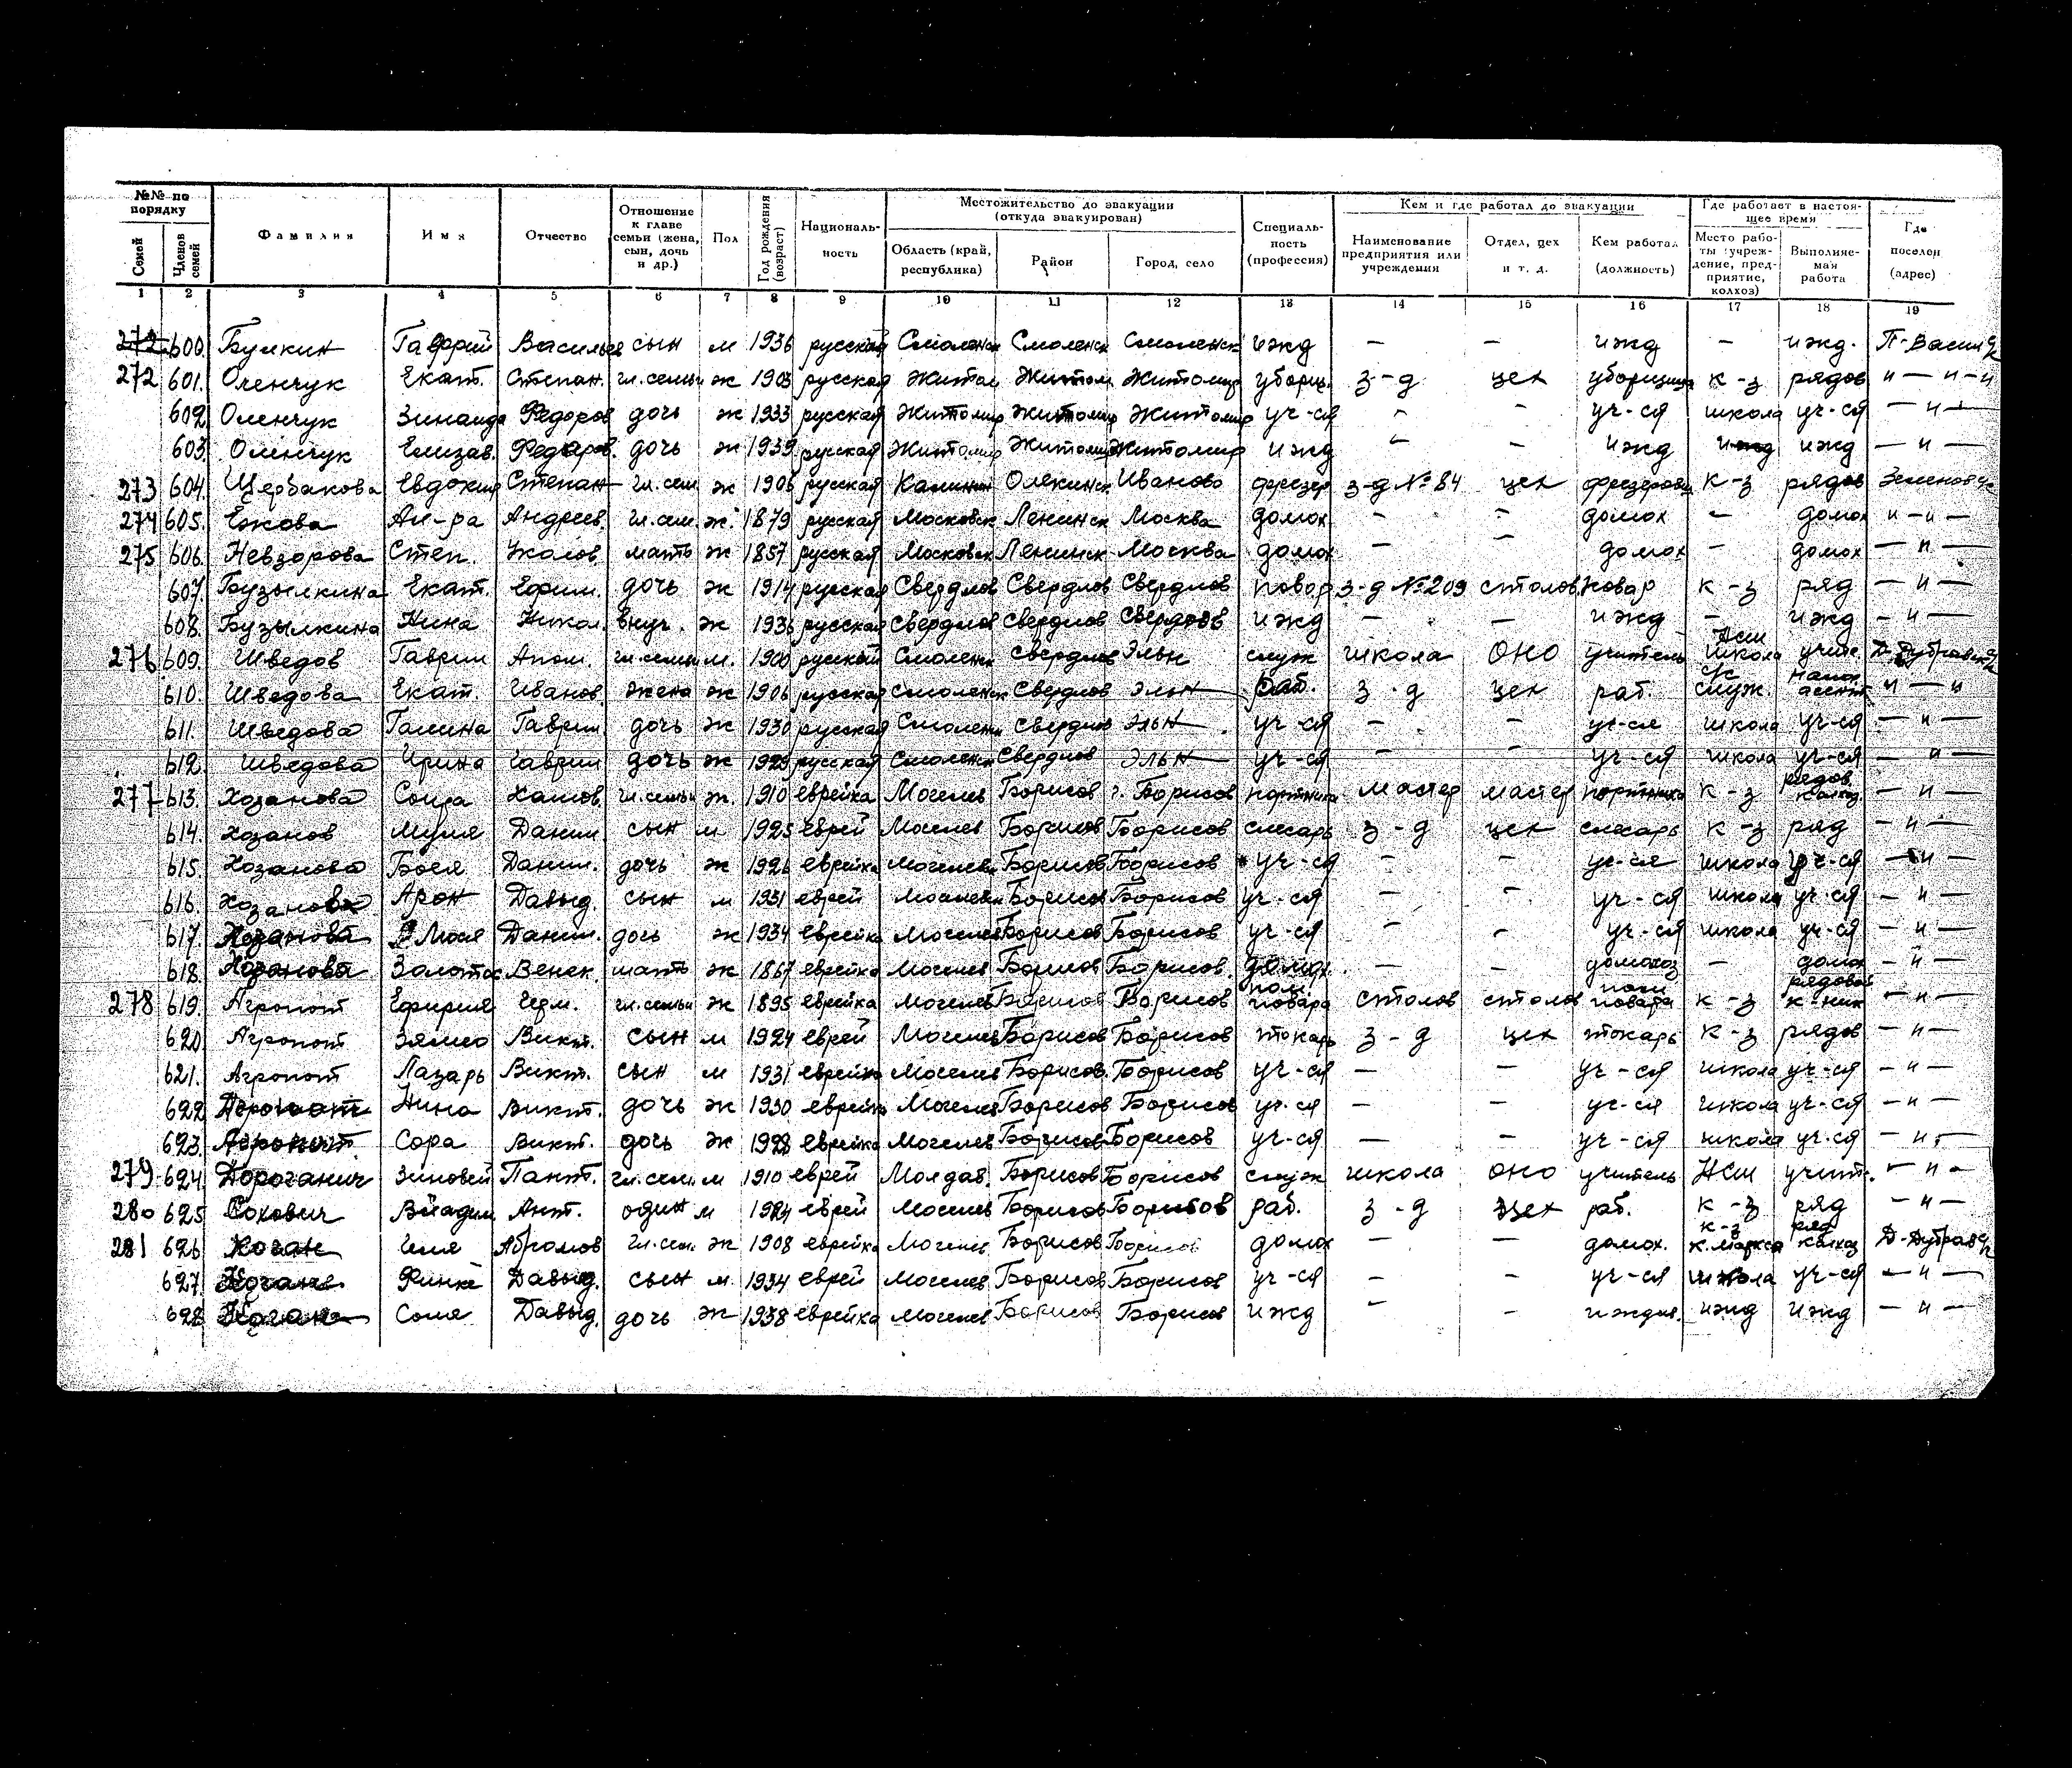 №№ по порядку | Фамилия | Имя | Отчество | Отношение к главе семьи (жена, сын, дочь и др.) | Пол | Год рождения (возраст) | Национальность | Местожительство до эвакуации (откуда эвакуирован) | Специальность (профессия) | Кем и где работал до эвакуации | Где работает в настоящее время | Где поселен (адрес)
Семей | Членов семей | Область (край, республика) | Район | Город, село | Наименование предприятия или учреждения | Отдел, цех и т. д. | Кем работал (должность) | Место работы (учреждение, предприятие, колхоз) | Выполняемая работа
1 2 3 4 5 6 7 8 9 10 11 12 13 14 15 16 17 18 19
272 600. Василье сын м 1936 русский Смоленск Смоленск Смоленск ижд — — ижд — ижд.
272 601. Оленчук Екат. Степан. гл. семьи ж 1903 русская Житом Житом Житомир уборщ. з-д цех уборщица к-з рядов и — и — и
602 Оленчук Зинаида Федоров дочь ж 1933 русская Житомир Житомир Житомир уч-ся - - уч-ся школа уч-ся — и —
603. Оленчук Елизав. Федоров. дочь ж 1939 русская Житомир Житомир Житомир ижд - - ижд ижд ижд — и —
273 604. Щербакова Евдокия Степан гл. сем ж 1906 русская Калинин Иваново фрезер з-д № 84 цех к-з рядов
274 605. Ежова Ан-ра Андреев. гл. сем. ж. 1879 русская Московск Ленинск Москва домох - - домох - домох и — и —
275 606. Невзорова Степ. мать ж 1857 русская Московск Ленинск Москва домох - - домох - домох — и —
607. Бузылкина Екат. Ефим. дочь ж 1914 русская Свердлов Свердлов Свердлов повар з-д № 209 столов. повар к-з ряд — и —
608. Бузылкина Нина Никол. внуч. ж 1936 русская Свердлов Свердлов Свердлов ижд — — ижд — ижд — и —
276 609. Шведов Гаврил гл. семьи м. 1900 русский Смоленск Свердлов Эльн служ школа ОНО учитель школа учит.
610. Шведова Екат. Иванов. жена ж 1906 русская Смоленск Свердлов Эльн раб. з-д цех раб. служ. и — и
611. Шведова Галина Гаврил. дочь ж 1930 русская Смоленск Свердлов Эльн уч-ся - - уч-ся школа уч-ся — и —
612. Шведова Ирина Гаврил дочь ж русская Смоленск Свердлов Эльн уч-ся - - уч-ся школа уч-ся — и —
277 613. Хозанова гл. семьи ж. 1910 еврейка Могилев Борисов г. Борисов портниха мастер мастер портниха к-з рядов колхоз. — и —
614. Хозанов Данил. сын м 1925 еврей Могилев Борисов Борисов слесарь з-д цех слесарь к-з ряд — и —
615. Хозанова Данил. дочь ж 1926 еврейка Могилев Борисов Борисов уч-ся - - уч-ся школа уч-ся — и —
616. Хозанов Арон Давыд. сын м 1931 еврей Могилев Борисов Борисов уч-ся - - уч-ся школа уч-ся — и —
617. Хозанова Данил. дочь ж 1934 еврейка Могилев Борисов Борисов уч-ся - - уч-ся школа уч-ся — и —
618. Хозанова мать ж 1867 еврейка Могилев Борисов Борисов. домох. — - домохоз — домох — и —
278 619. Агропот гл. семьи ж 1895 еврейка Могилев Борисов Борисов пом повара столов столов пом повара к-з рядовой к-ник — и —
620 Агропот Викт. сын м 1924 еврей Могилев Борисов Борисов токарь з-д цех токарь к-з рядов — и —
621. Агропот Лазарь Викт. сын м 1931 еврейка Могилев Борисов. Борисов уч-ся — — уч-ся школа уч-ся — и —
622 Агропот Нина Викт. дочь ж 1930 еврейка Могилев Борисов Борисов уч-ся — — уч-ся школа уч-ся — и —
623. Агропот Сора Викт. дочь ж 1928 еврейка Могилев Борисов Борисов уч-ся — — уч-ся школа уч-ся — и —
279 624. Дороганич Зиновей Пант. гл. сем. м 1910 еврей Молдав. Борисов Борисов служ школа ОНО учитель НСШ учит. — и —
280 625 один м 1924 еврей Могилев Борисов Борисов раб. з-д цех раб. к-з ряд — и —
281 626 Коган Абрамов гл. сем. ж 1908 еврейка Могилев Борисов Борисов домох — — домох. к-з к. маркса ряд колхоз
627. Коган Давыд. сын м. 1934 еврей Могилев Борисов Борисов уч-ся — — уч-ся школа уч-ся — и —
628 Коган Соня Давыд. дочь ж 1938 еврейка Могилев Борисов Борисов ижд — - иждив. ижд ижд — и —